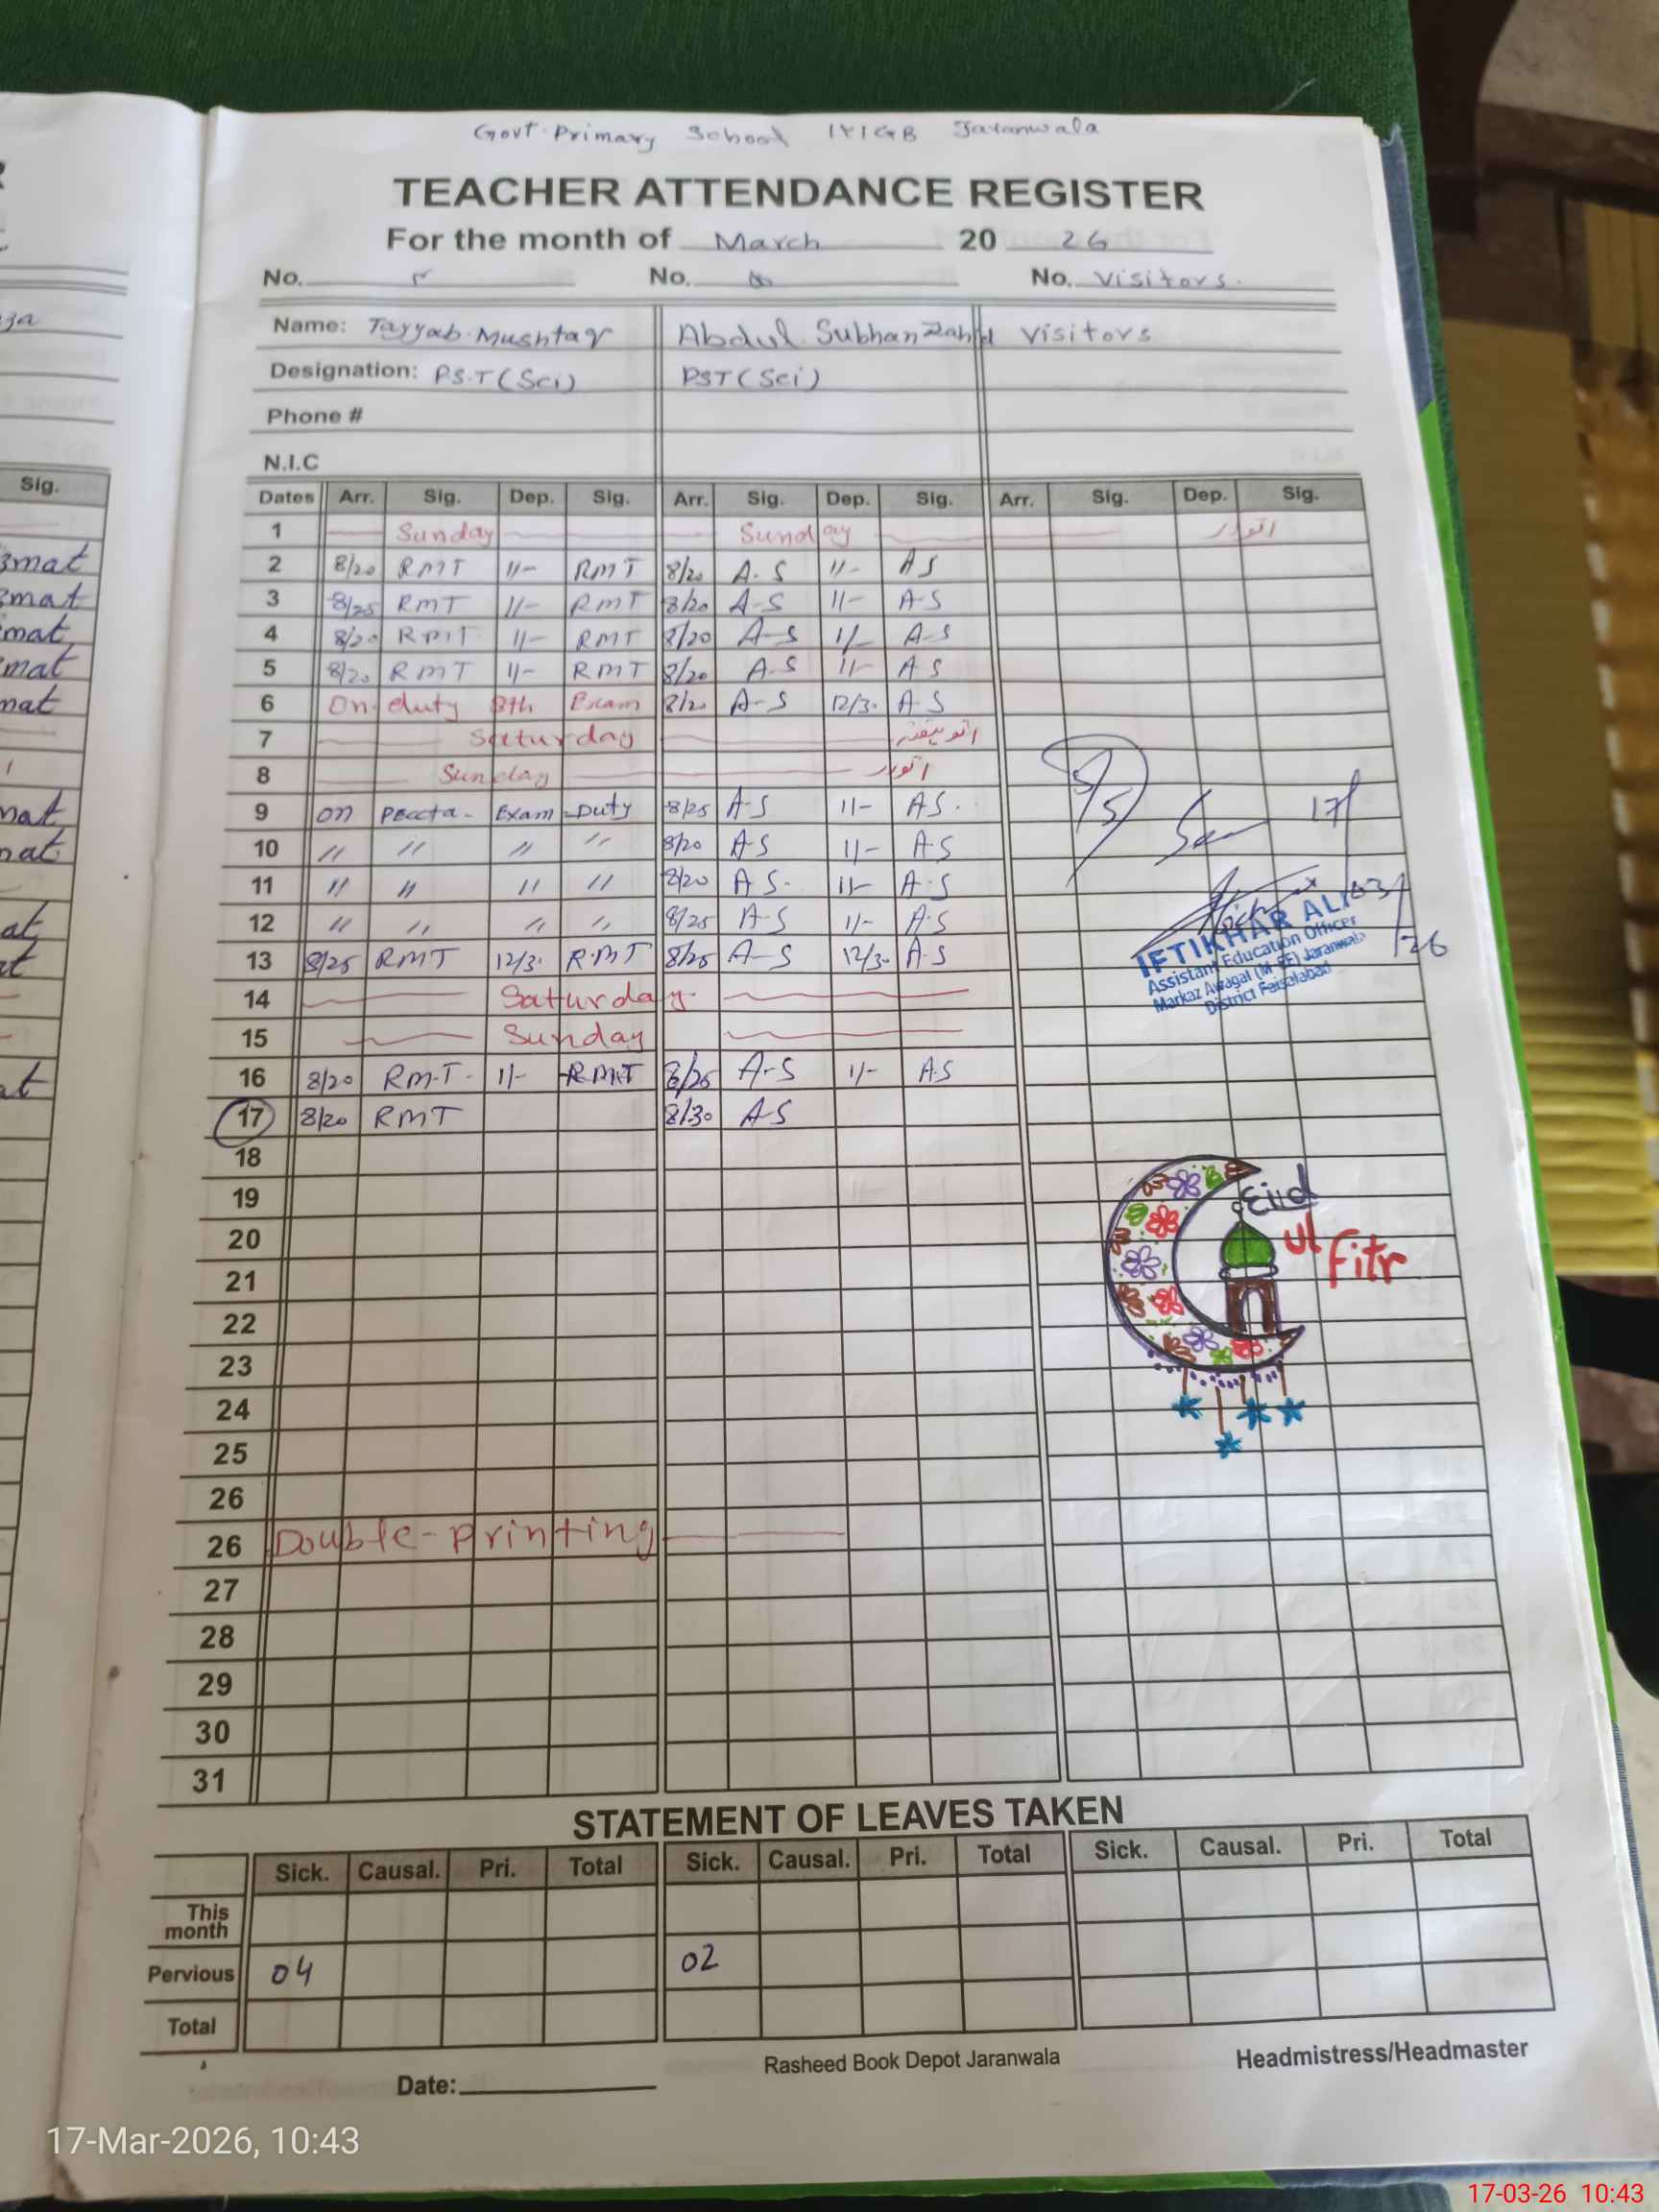 Govt. Primary School 141GB Jaranwala
TEACHER ATTENDANCE REGISTER
For the month of March 20 26
No. No. No. Visitors.
Name: Tayyab. Mushtaq Abdul. Subhan Zahid Visitors
Designation: P.S.T (Sci) PST (Sci)
Phone #
N.I.C
Dates Arr. Sig. Dep. Sig. Arr. Sig. Dep. Sig. Arr. Sig. Dep. Sig.
1 Sunday Sunday اتوار
2 8/20 RMT 11- RMT 8/20 A.S 11- AS
3 8/25 RMT 11- RMT 8/20 A-S 11- A-S
4 8/20 RMT 11- RMT 8/20 A-S 11- A-S
5 8/20 RMT 11- RMT 8/20 A.S 11- A S
6 On duty 8th Exam 8/20 A-S 12/30 A-S
7 Saturday
8 Sunday اتوار
9 on Peccta- Exam-Duty 8/25 A-S 11- AS.
10 " " " " 8/20 A-S 11- A-S
11 " " " " 8/20 A S. 11- A-S
12 " " " " 8/25 A-S 11- A-S
13 8/25 RMT 12/30 R.MT 8/25 A-S 12/30 A-S
14 Saturday
15 Sunday
16 8/20 RM.T. 11- RMT 8/25 A-S 11- A.S
17 8/20 RMT 8/30 A-S
17/03/26
IFTIKHAR ALI
Assistant Education Officer
Markaz Awagat (M-EE) Jaranwala
District Faisalabad
18
19
20
21
22
23
24
25
26
26 Double-printing
27
28
29
30
31
Eid
ul
Fitr
STATEMENT OF LEAVES TAKEN
Sick. Causal. Pri. Total Sick. Causal. Pri. Total Sick. Causal. Pri. Total
This month
Pervious 04 02
Total
Date: Rasheed Book Depot Jaranwala Headmistress/Headmaster
Sig.
mat
mat
mat
mat
mat
mat
17-Mar-2026, 10:43
17-03-26 10:43